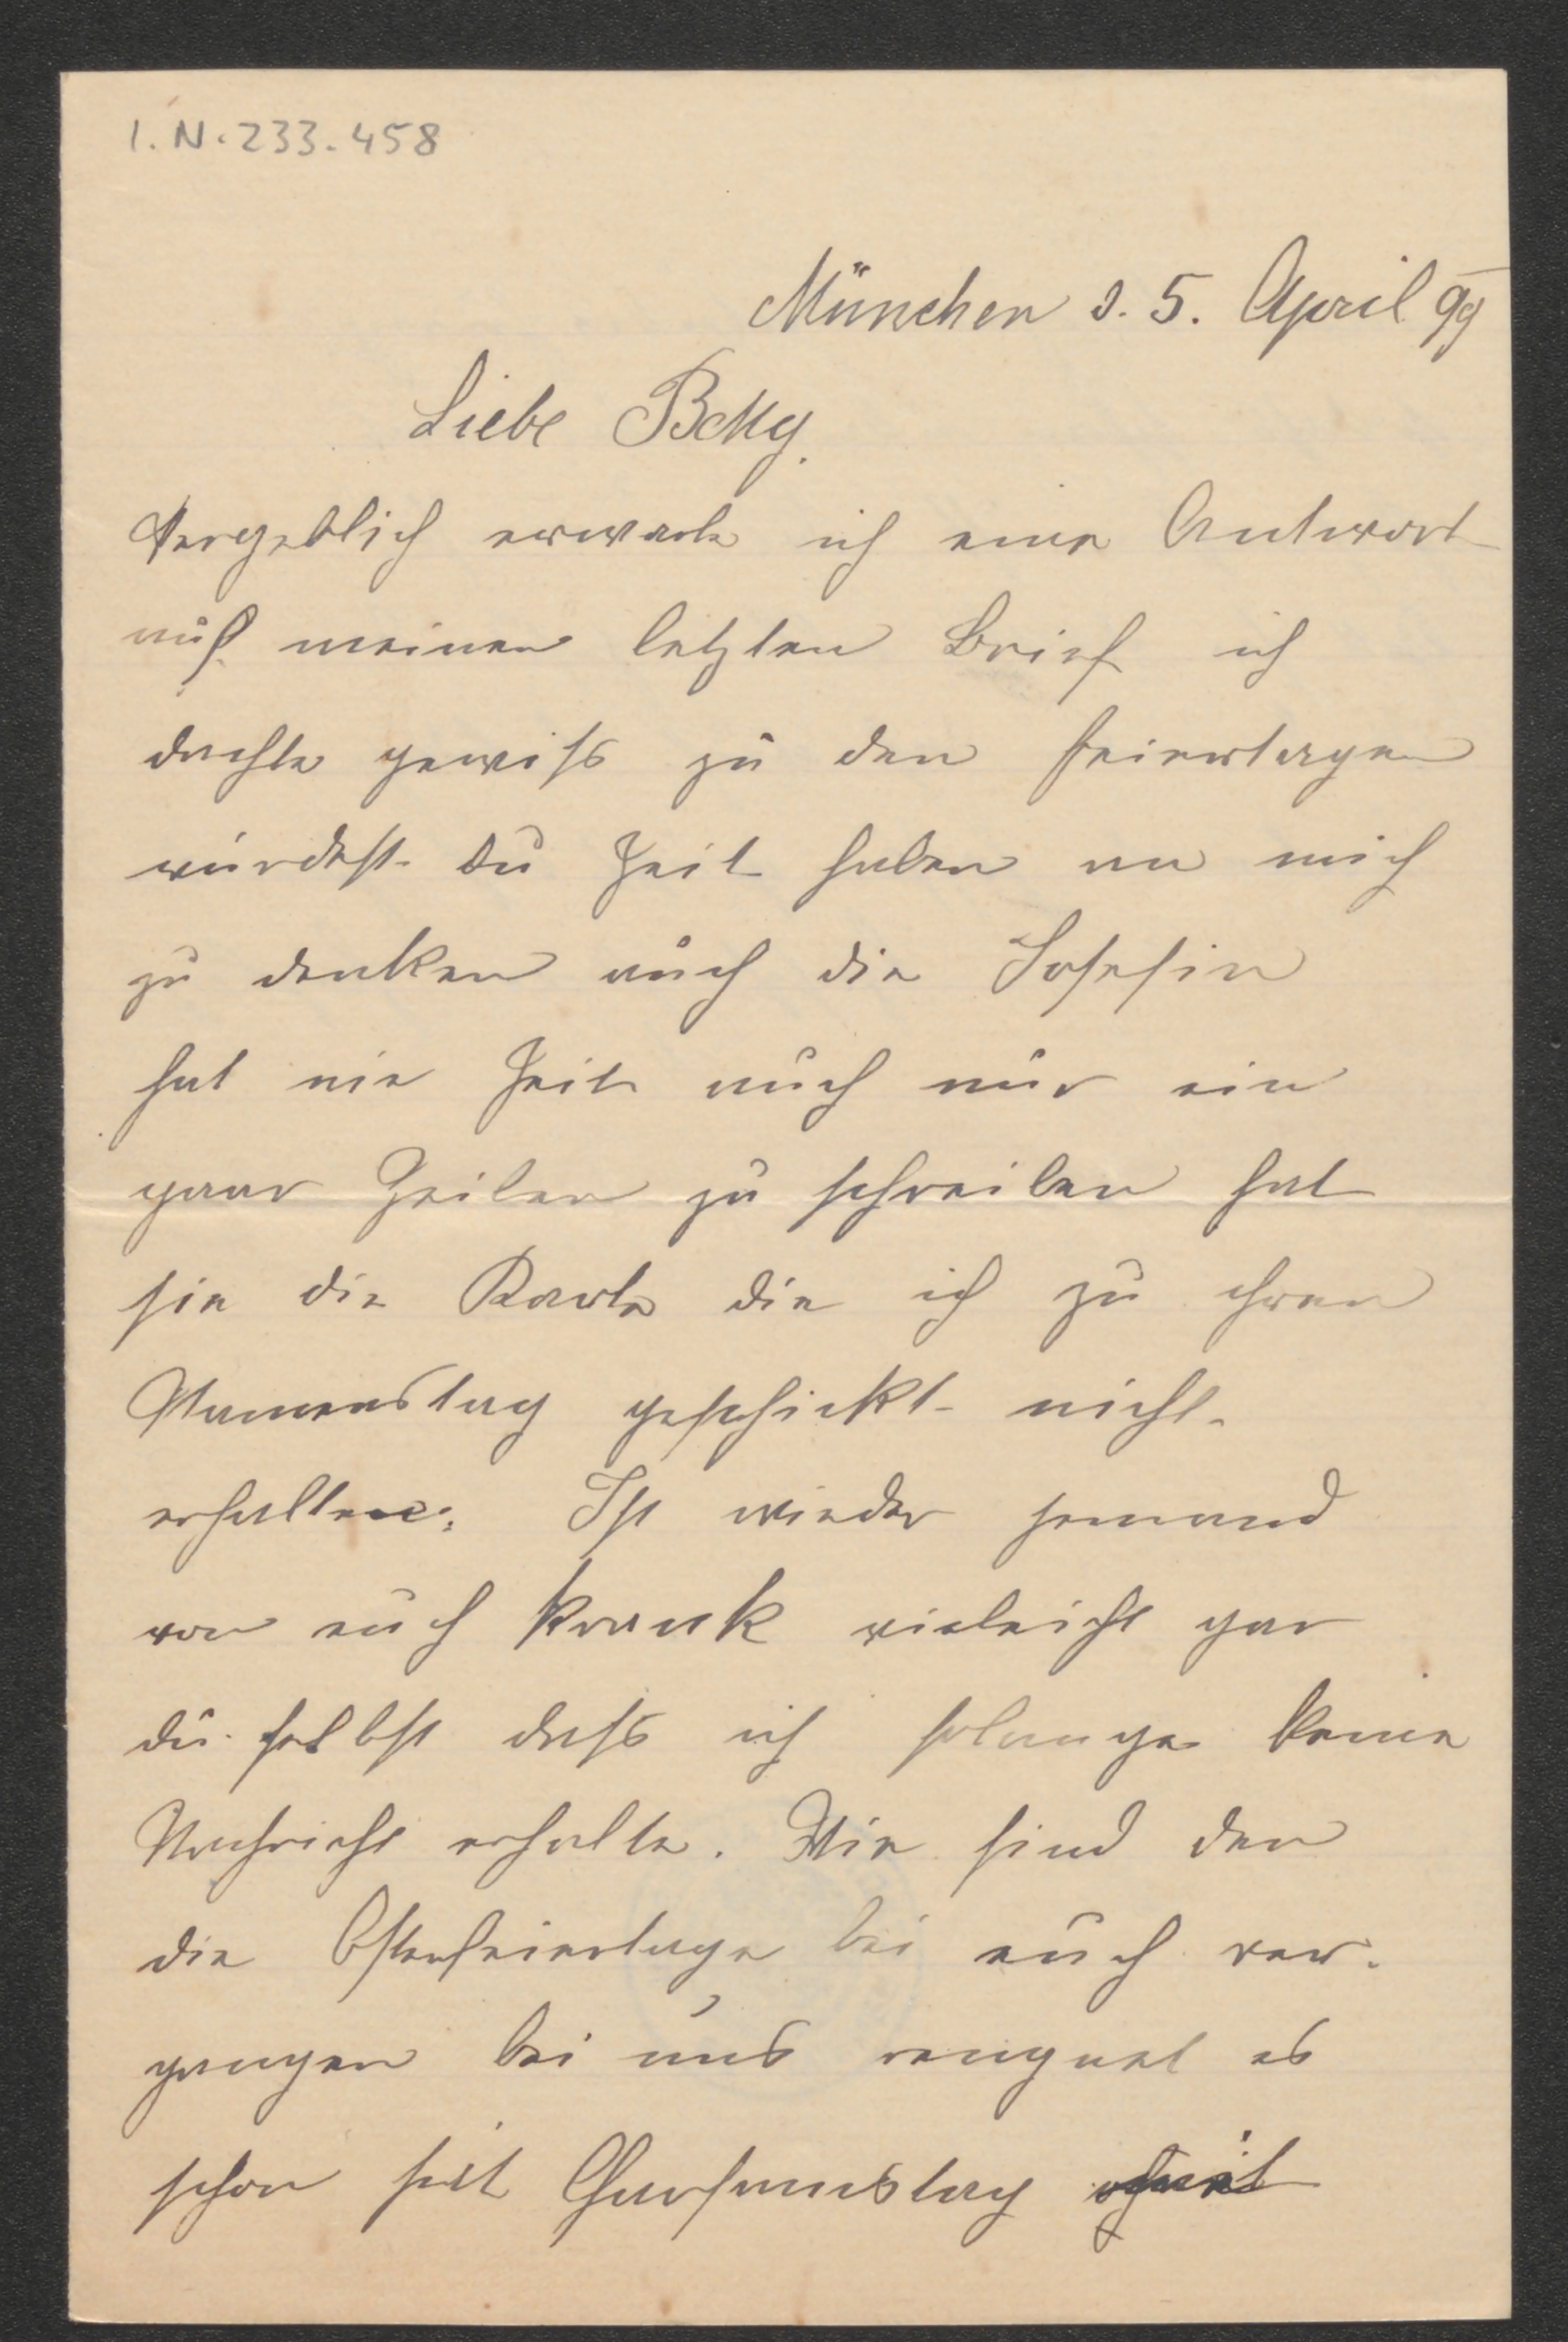 I.N. 233.458
München d. 5. April 99
Liebe Betty.
Vergeblich erwarte ich eine Antwort
auf meinen letzten Brief ich
dachte gewiß zu den Feiertagen
würdest Du Zeit haben an mich
zu denken auch die Josefin
hat nie Zeit auch nur ein
paar Zeilen zu schreiben hat
sie die Karte die ich zu ihren
Namenstag geschickt nicht
erhalten. Ist wieder jemand
von euch krank vieleicht gar
du selbst daß ich solange keine
Nachricht erhalte. Wie sind den
die Osterfeiertage bei euch ver-
gangen bei uns rengnet es
schon seit Charsamstag